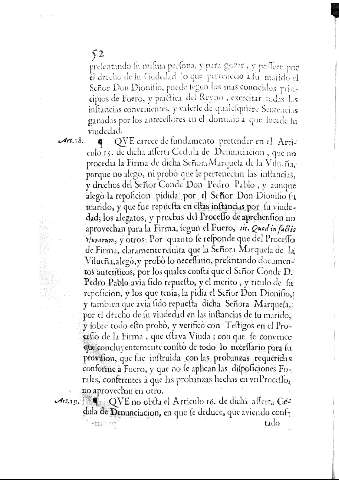 52
presentando su misma persona, y para gozar, y posseer por
el drecho de su viudedad lo que perteneciò a su marido el
Señor Don Dionisio, puede segun los mas conocidos prin-
cipios de Fuero, y practica del Reyno, exercitar todas las
instancias convenientes, y valerse de qualesquiere Sentencias
ganadas por los antecessores en el dominio a que sucede su
viudedad.
Art. 18. ¶ QVE carece de fundamento pretender en el Arti-
culo 15. de dicha asserta Cedula de Denunciacion, que no
procedia la Firma de dicha Señora Marquesa de la Vilueña,
porque no alegò, ni probò que le pertenecian las instancias,
y drechos del Señor Conde Don Pedro Pablo, y aunque
alegò la reposicion pedida por el Señor Don Dionisio su
marido, y que fue repuesta en estas instancias por su viude-
dad; los alegatos, y pruebas del Processo de aprehension no
aprovechan para la Firma, segun el Fuero, tit. Quod in factis
Vniversitatum, y otros Por quanto se responde que del Processo
de Firma, claramente resulta que la Señora Marquesa de la
Vilueña, alegò, y probò lo necessario, presentando documen-
tos autenticos, por los quales consta que el Señor Conde D.
Pedro Pablo avia sido repuesto, y el merito, y titulo de su
reposicion, y los que tenia, la pidiò el Señor Don Dionisio,
y tambien que avia sido repuesta dicha Señora Marquesa,
por el drecho de su viudedad en las instancias de su marido,
y sobre todo esto probò, y verificò con Testigos en el Pro-
cesso de la Firma, que estava Viuda: con que se convence
que concluyentemente constò de todo lo necessario para su
provision, que fue instruida con las probanzas requeridas
conforme a Fuero, y que no se aplican las disposiciones Fo-
rales, conserentes à que las probanzas hechas en vn Processo,
no aprovechan en otro.
Art. 19. ¶ QVE no obsta el Articulo 16. de dicha assert. Ce-
dula de Denunciacion, en que se deduce, que aviendo cons-
tado